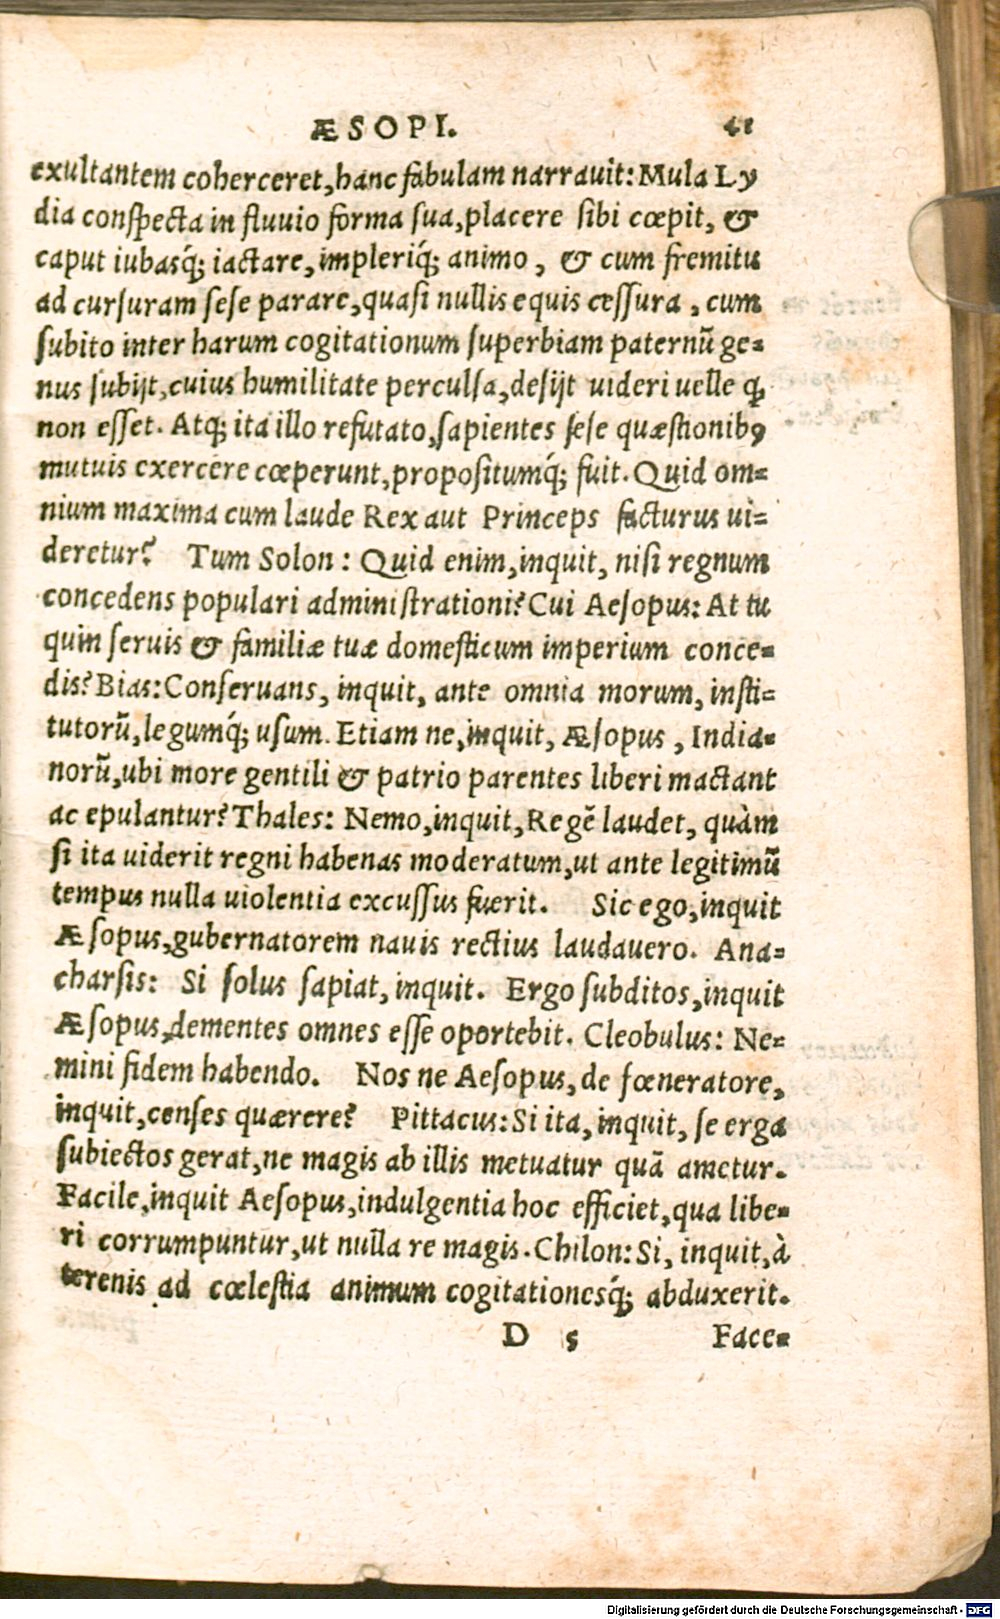 ÆSOPI. 41
exultantem coherceret, hanc fabulam narrauit: Mula Ly
dia conſpecta in fluuio forma ſua, placere ſibi cœpit, &
caput iubasq́; iactare, impleriq́; animo, & cum fremitu
ad curſuram ſeſe parare, quaſi nullis equis ceſſura, cum
ſubito inter harum cogitationum ſuperbiam paternũ ge-
nus ſubijt, cuius humilitate perculſa, deſijt uideri uelle q̃
non eſſet. Atq; ita illo refutato, ſapientes ſeſe quæſtionibꝰ
mutuis exercere cœperunt, propoſitumq́; fuit. Quid om-
nium maxima cum laude Rex aut Princeps facturus ui-
deretur? Tum Solon: Quid enim, inquit, niſi regnum
concedens populari adminiſtrationi? Cui Aeſopus: At tu
quin ſeruis & familiæ tuæ domeſticum imperium conce-
dis? Bias: Conſeruans, inquit, ante omnia morum, inſti-
tutorũ, legumq́; uſum. Etiam ne, inquit, Æſopus, India-
norũ, ubi more gentili & patrio parentes liberi mactant
ac epulantur? Thales: Nemo, inquit, Regẽ laudet, quàm
ſi ita uiderit regni habenas moderatum, ut ante legitimũ
tempus nulla uiolentia excuſſus fuerit. Sic ego, inquit
Æſopus, gubernatorem nauis rectius laudauero. Ana-
charſis: Si ſolus ſapiat, inquit. Ergo ſubditos, inquit
Æſopus, dementes omnes eſſe oportebit. Cleobulus: Ne-
mini fidem habendo. Nos ne Aeſopus, de fœneratore,
inquit, cenſes quærere? Pittacus: Si ita, inquit, ſe erga
ſubiectos gerat, ne magis ab illis metuatur quã ametur.
Facile, inquit Aeſopus, indulgentia hoc efficiet, qua libe-
ri corrumpuntur, ut nulla re magis. Chilon: Si, inquit, à
terenis ad cœleſtia animum cogitationesq́; abduxerit.
D 5 Face-
Digitalisierung gefördert durch die Deutsche Forschungsgemeinschaft - DFG